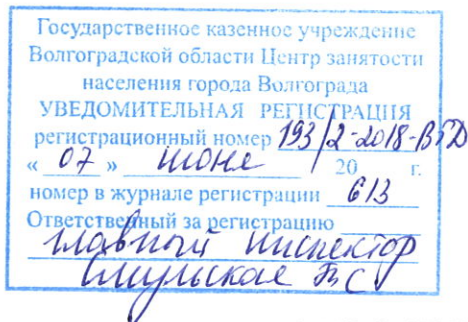 Государственное казенное учреждение
Волгоградской области Центр занятости
населения города Волгограда
УВЕДОМИТЕЛЬНАЯ РЕГИСТРАЦИЯ
регистрационный номер 193/2-2018-ВГД
« 07 » июне 20 г.
номер в журнале регистрации 613
Ответственный за регистрацию
главный инспектор